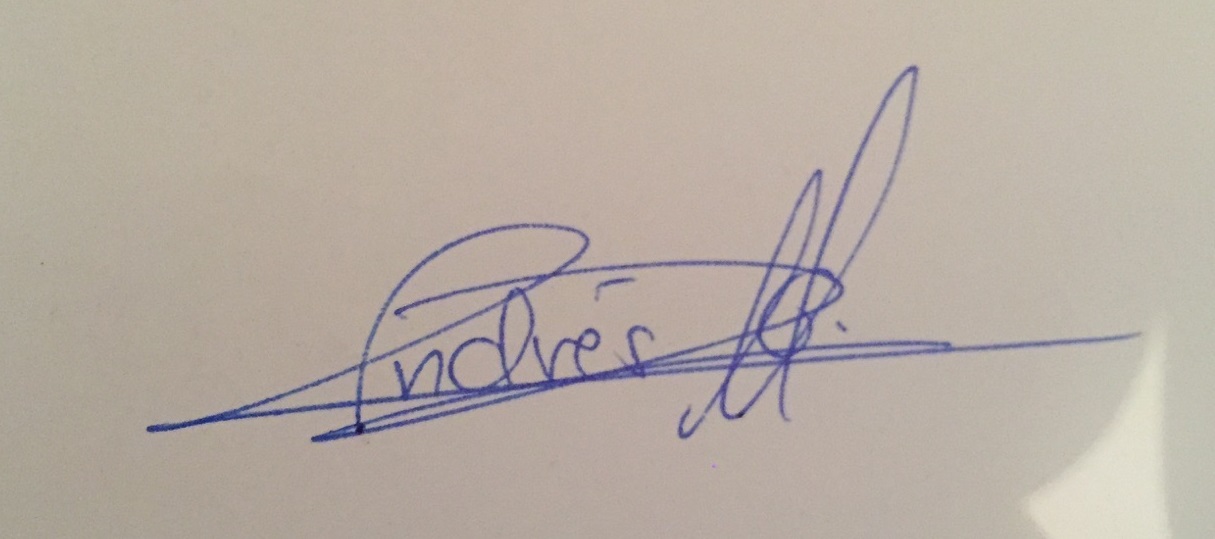 Andrés M.